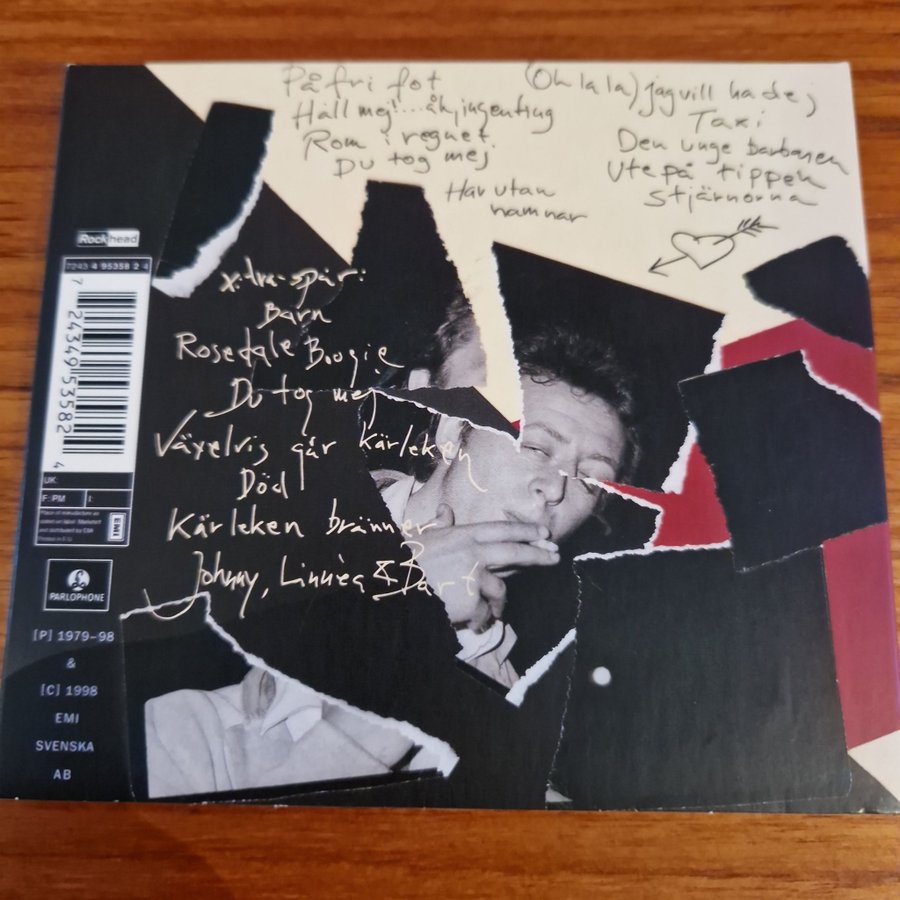 På fri fot
Håll mej!...åh, ingenting
Rom i regnet
Du tog mej
Har utan
hamnar
(Oh la la) jag vill ha dej
Taxi
Den unge barbaren
Ute på tippen
Stjärnorna
x-tra-spår:
Barn
Rosedale Boogie
Du tog mej
Växelvis går kärleken
Död
Kärleken bränner
Johnny, Linnéa & Bart
Rockhead
7243 4 95358 2 4
7 24349 53582 4
UK:
F: PM I:
EMI
PARLOPHONE
[P] 1979-98
&
[C] 1998
EMI
SVENSKA
AB